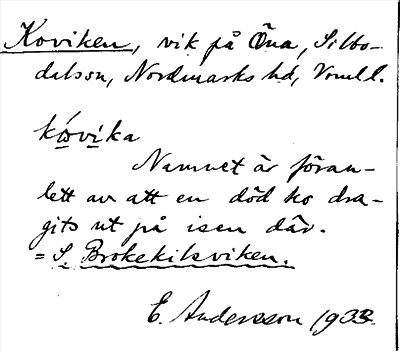 Koviken, vik på Öna, Silbo-
dalssn, Nordmarks hd, Vrml.
kóvika
Namnet är föran-
lett av att en död ko dra-
gits ut på isen där.
= S. Brokekilsviken.
E. Andersson 1933.